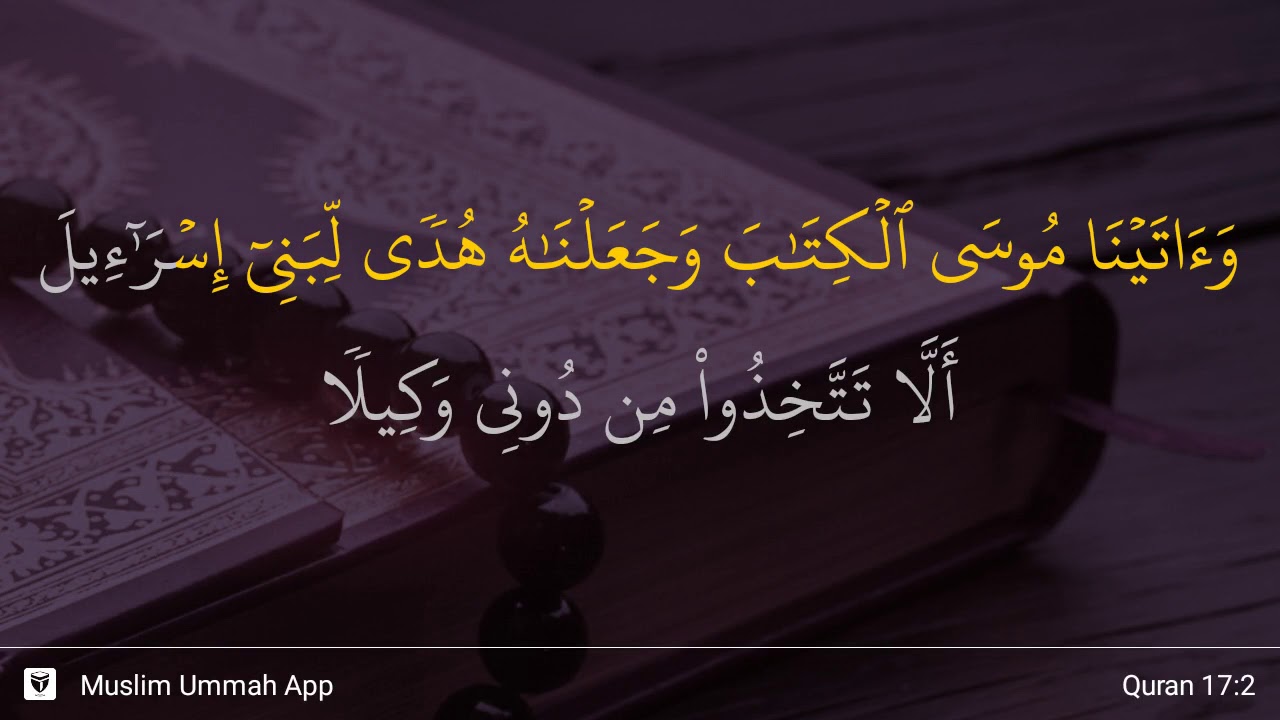 وَءَاتَيْنَا مُوسَى ٱلْكِتَـٰبَ وَجَعَلْنَـٰهُ هُدًى لِّبَنِىٓ إِسْرَٰٓءِيلَ
أَلَّا تَتَّخِذُوا۟ مِن دُونِى وَكِيلًا
Muslim Ummah App
Quran 17:2